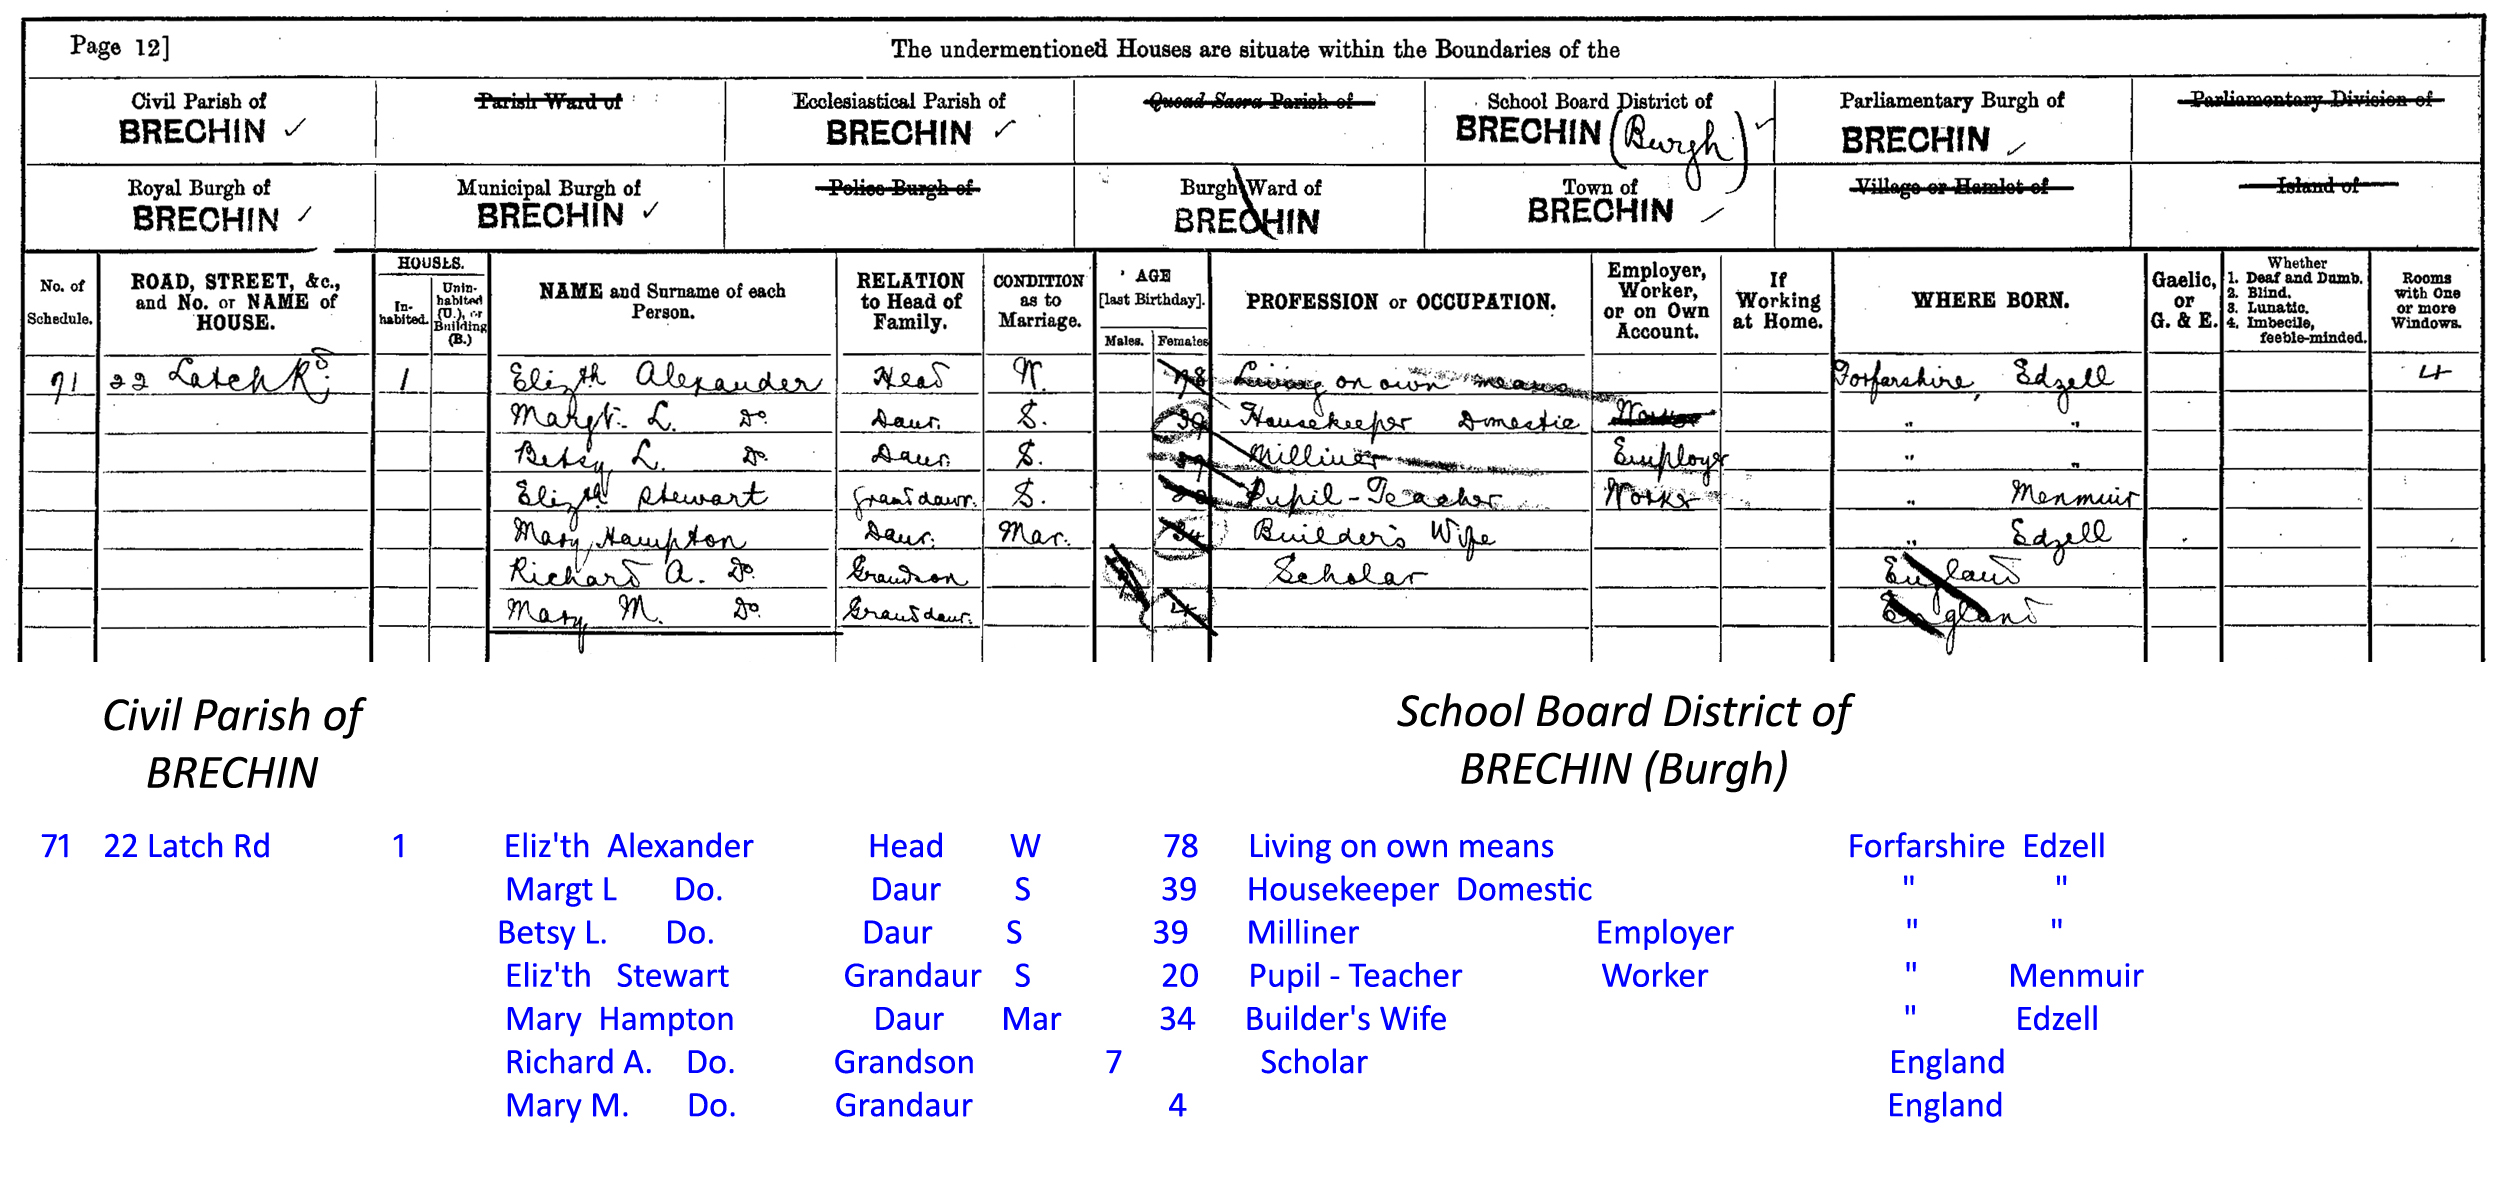 Page 12]
The undermentioned Houses are situate within the Boundaries of the
Civil Parish of
BRECHIN ✓
Parish Ward of
Ecclesiastical Parish of
BRECHIN ✓
Quoad Sacra Parish of
School Board District of
BRECHIN (Burgh) ✓
Parliamentary Burgh of
BRECHIN ✓
Parliamentary Division of
Royal Burgh of
BRECHIN ✓
Municipal Burgh of
BRECHIN ✓
Police Burgh of
Burgh Ward of
BRECHIN
Town of
BRECHIN
Village or Hamlet of
Island of
No. of Schedule.
ROAD, STREET, &c., and No. or NAME of HOUSE.
HOUSES.
In-habited.
Unin-habited (U.), or Building (B.)
NAME and Surname of each Person.
RELATION to Head of Family.
CONDITION as to Marriage.
AGE [last Birthday].
Males.
Females
PROFESSION or OCCUPATION.
Employer, Worker, or on Own Account.
If Working at Home.
WHERE BORN.
Gaelic, or G. & E.
Whether
1. Deaf and Dumb.
2. Blind.
3. Lunatic.
4. Imbecile, feeble-minded.
Rooms with One or more Windows.
71 22 Latch Rd. 1 Elizth Alexander Head W. 78 Living on own means Forfarshire, Edzell 4
Margt. L. Do. Daur. S. 39 Housekeeper Domestic Worker " "
Betsy L. Do. Daur. S. 39 Milliner Employer " "
Elizth Stewart Grandaur. S. 20 Pupil-Teacher Worker " Menmuir
Mary Hampton Daur. Mar. 34 Builder's Wife " Edzell
Richard A. Do. Grandson Scholar England
Mary M. Do. Grandaur. 4 England
Civil Parish of
BRECHIN
School Board District of
BRECHIN (Burgh)
71 22 Latch Rd 1 Eliz'th Alexander Head W 78 Living on own means Forfarshire Edzell
Margt L Do. Daur S 39 Housekeeper Domestic " "
Betsy L. Do. Daur S 39 Milliner Employer " "
Eliz'th Stewart Grandaur S 20 Pupil - Teacher Worker " Menmuir
Mary Hampton Daur Mar 34 Builder's Wife " Edzell
Richard A. Do. Grandson 7 Scholar England
Mary M. Do. Grandaur 4 England